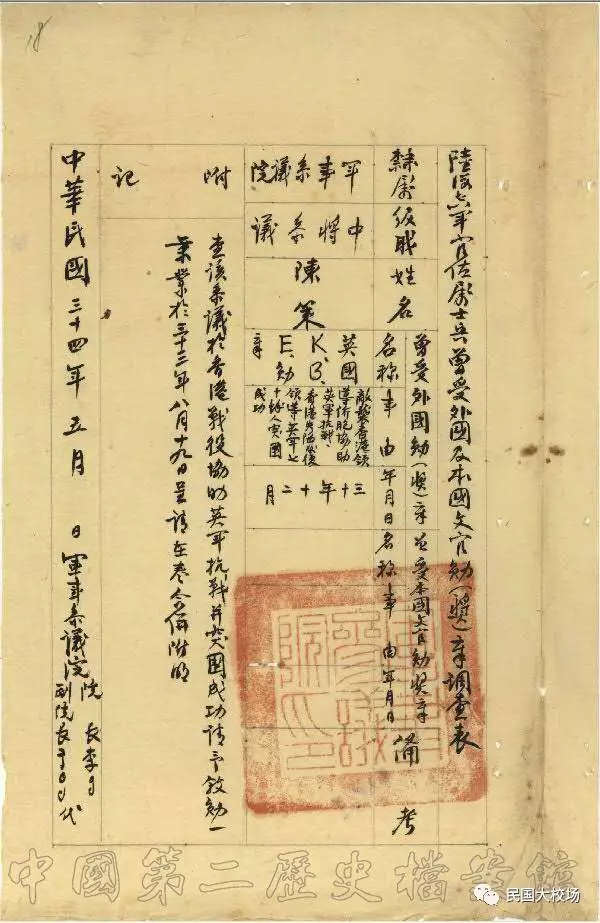 18
陸海空軍官佐屬士兵曾受外國及本國文官勛(獎)章調查表
隸屬
級職
姓名
曾受外國勛(獎)章
名稱
事由
年月日
並受本國文官勛獎章
名稱
事由
年月日
備考
軍事參議院
中將參議
陳策
英國
K.B.
E.勛
章
敵襲香港領
導僑胞協助
英軍抗戰,
香港失陷後
領導英軍七
十餘人突圍
成功
三十年十二月
附記
查該參議於香港戰役協助英軍抗戰并突圍成功請予敘勛一
案業於三十三年八月十九日呈請在卷合併附明
中華民國三十四年五月 日
軍事參議院院長李
副院長 代
軍事參議院印
中國第二歷史檔案館
民国大校场